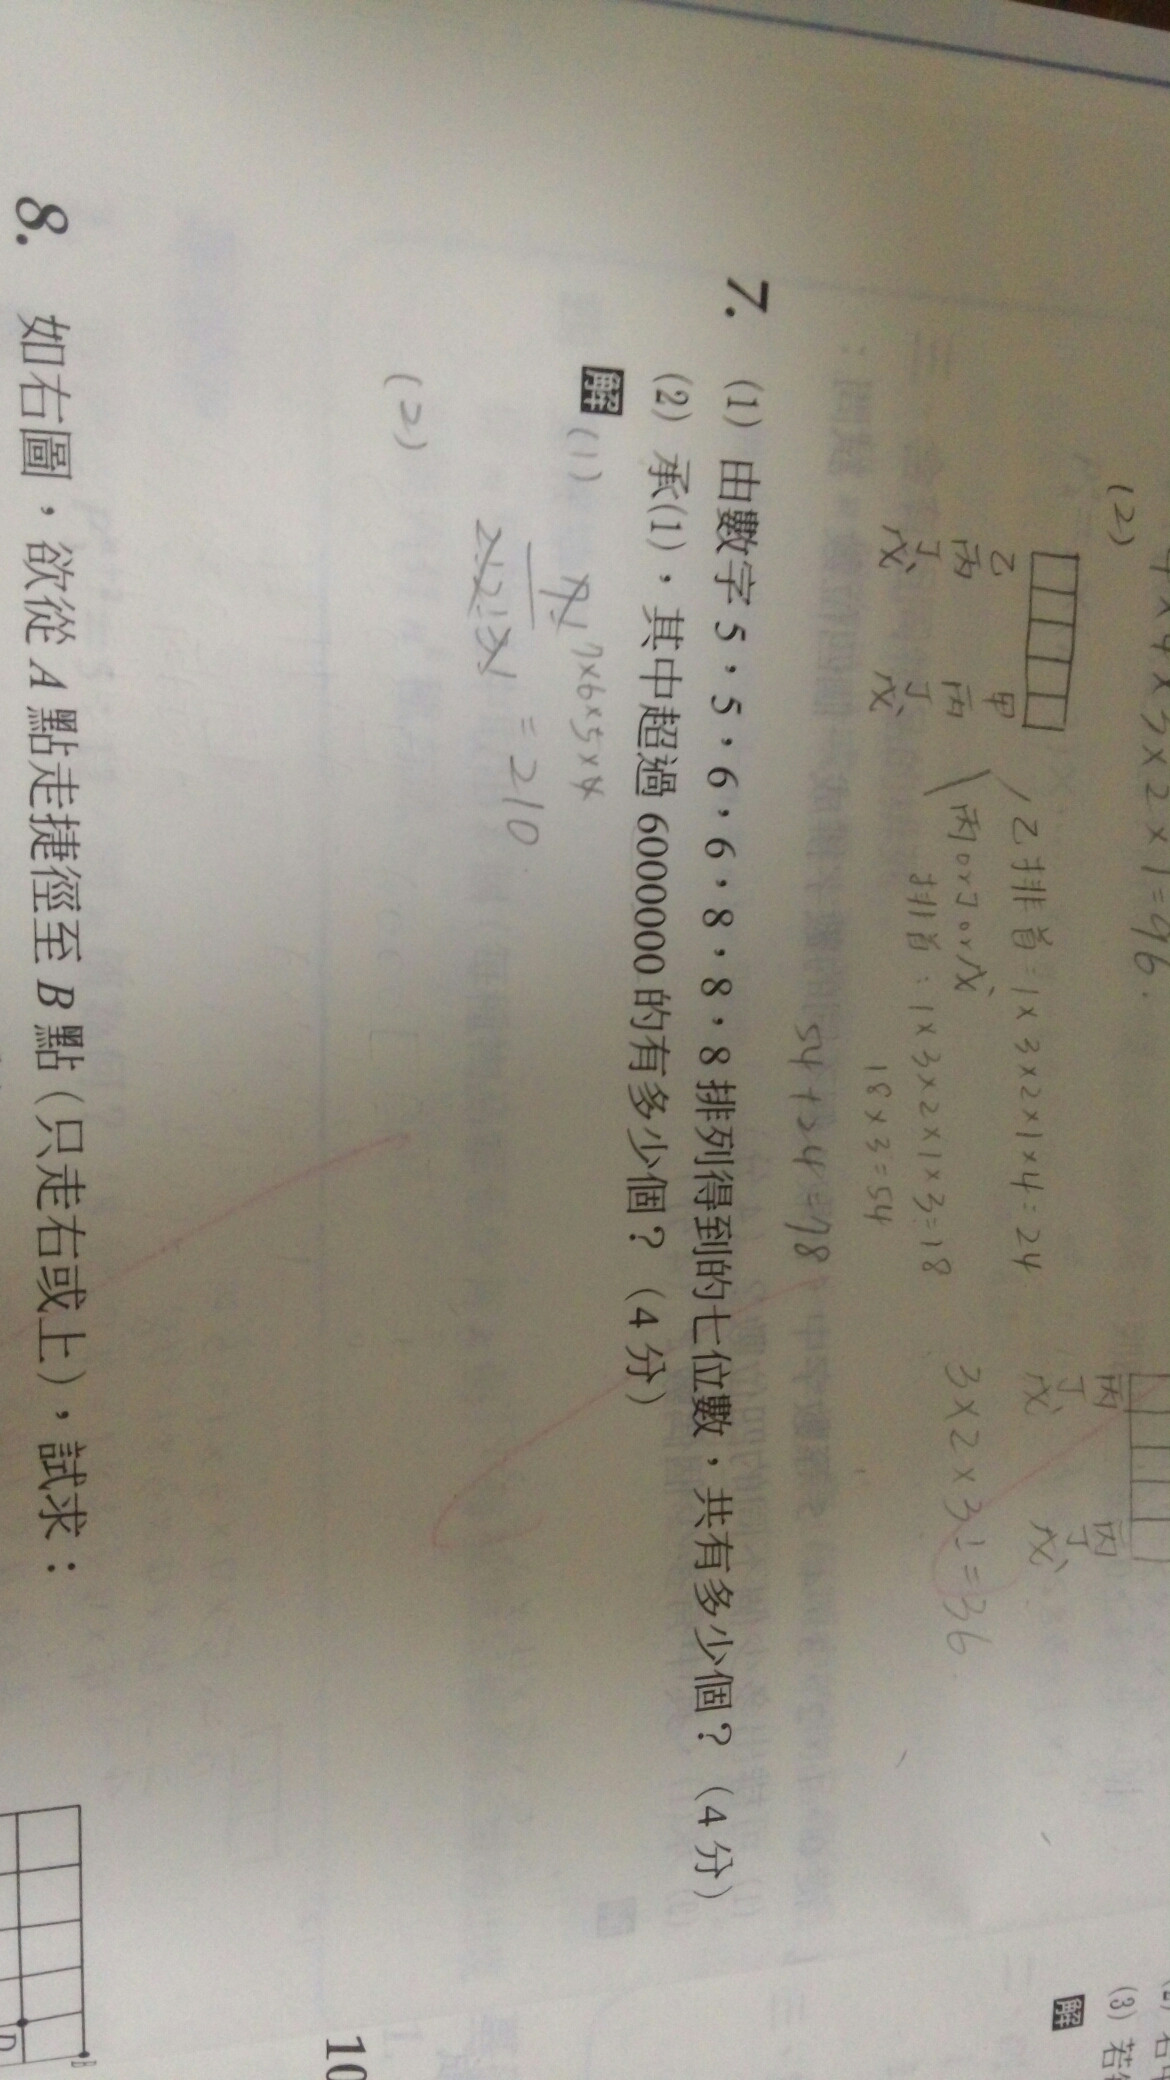 4×4×3×2×1=96.
(2)
乙 甲
丙 丙
丁 丁
戊 戊
乙排首=1×3×2×1×4=24
丙or丁or戊
排首:1×3×2×1×3=18
18×3=54
54+24=78
丙 丙
丁 丁
戊 戊
3×2×3!=36.
(3) 若
解
7. (1) 由數字 5,5,6,6,8,8,8 排列得到的七位數,共有多少個?(4 分)
(2) 承(1),其中超過 6000000 的有多少個?(4 分)
解 (1) 7! 7×6×5×4
2!2!3! =210.
(2)
10
8. 如右圖,欲從 A 點走捷徑至 B 點(只走右或上),試求:
B
D